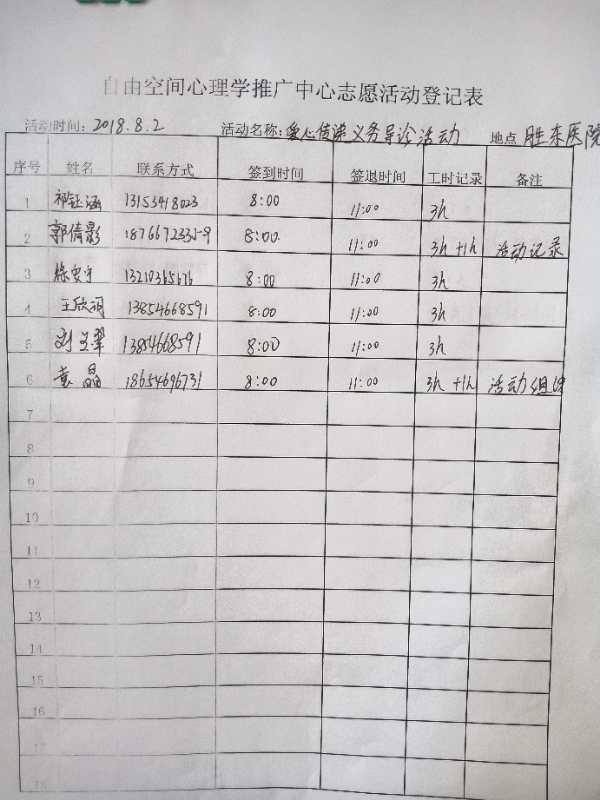 自由空间心理学推广中心志愿活动登记表
活动时间：2018.8.2 活动名称：爱心传递义务导诊活动 地点 胜东医院
序号 姓名 联系方式 签到时间 签退时间 工时记录 备注
1 祁钰涵 13153418023 8:00 11:00 3h
2 郭倩影 18766723359 8:00 11:00 3h +1h 活动记录
3 13210365676 8:00 11:00 3h
4 王欣 13854668591 8:00 11:00 3h
5 刘 13854668591 8:00 11:00 3h
6 袁晶 18654696731 8:00 11:00 3h +1h 活动组织
7
8
9
10
11
12
13
14
15
16
17
18